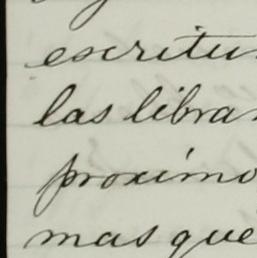 escritu
las libra
proximo
mas que